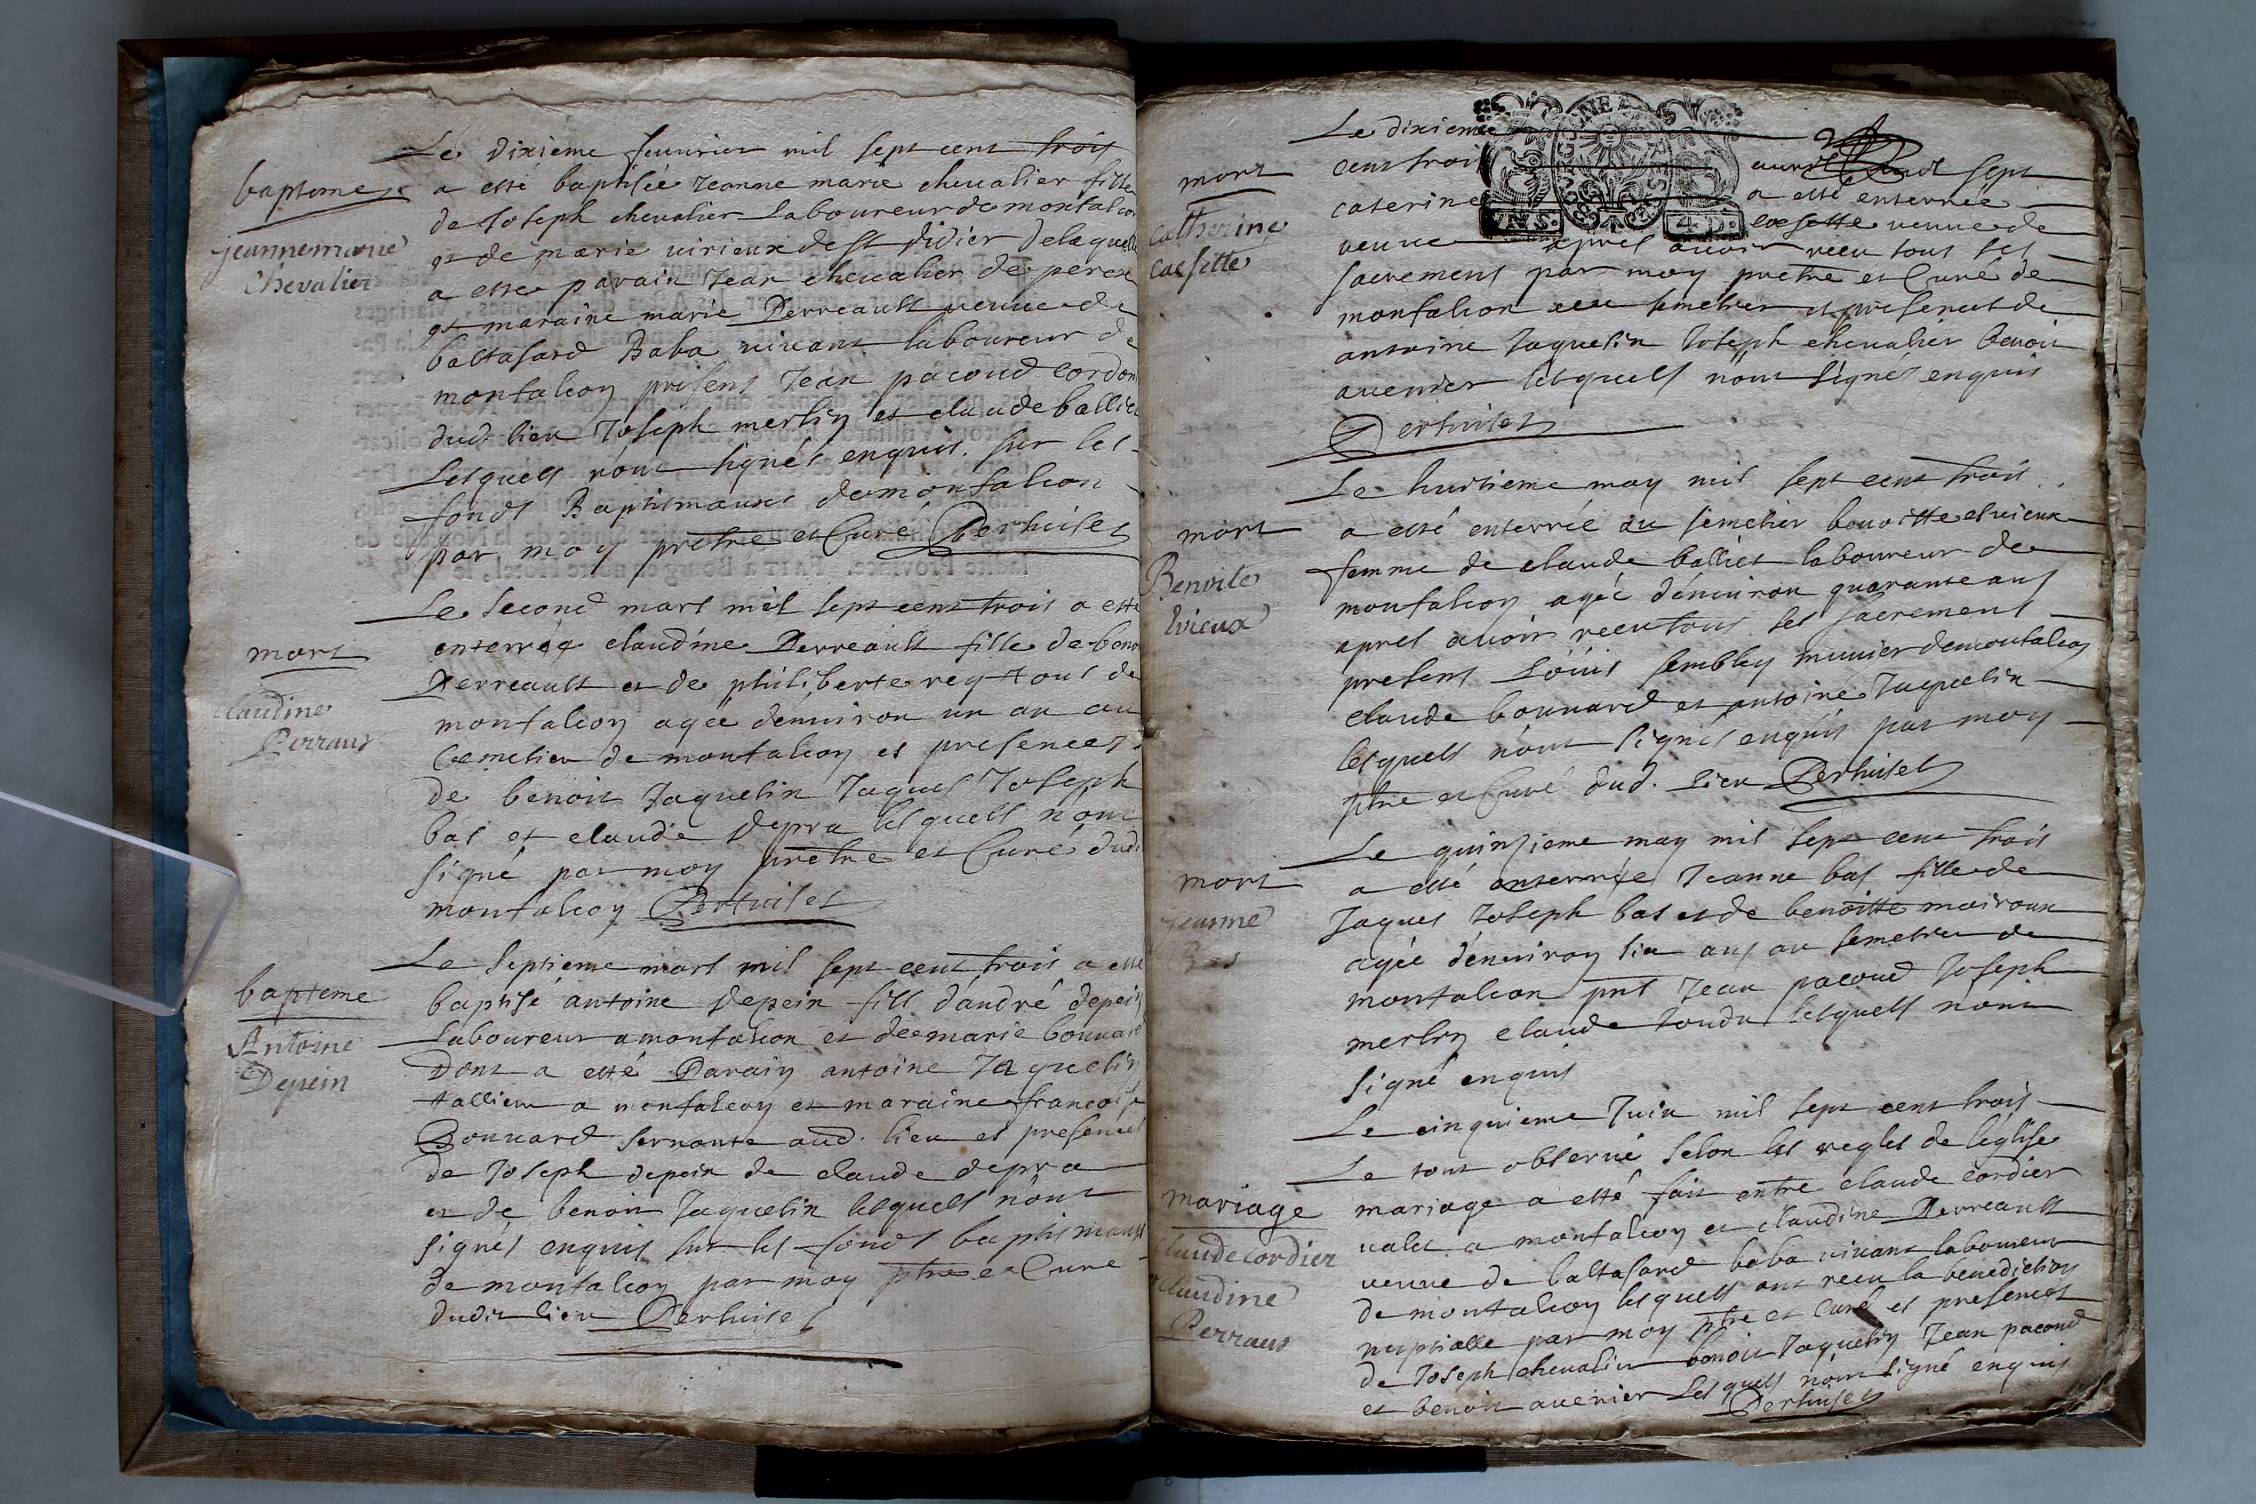 baptemes
jeanne marie
Chevalier
Le dixieme feuurier mil sept cent trois
a esté baptisée Jeanne marie cheualier fille
de Joseph cheualier Laboureur de montalcon
et de marie uirieux de St didier de laquelle
a esté parain Jean cheualier de perex
et maraine marie Perreault ueuue de
baltasard Baba uiuant laboureur de
montalcon presens Jean pacoud cordon
dudt lieu Joseph merlin et claude balliet
Lesquels n'ont signés enquis sur les
fonds Baptismaux de montalcon
par moy pretre et Curé Perhuiset
mort
claudine
Perraut
Le second mars mil sept cent trois a esté
enterrée claudine Perreault fille de beno
Perreault et de philiberte rey tous de
montalcon agée d'enuiron un an au
Cemetier de montalcon es presences
de benoit Jaquelin Jaques Joseph
bas et claude depra lesquels n'ont
signé par moy pretre et Curé dudt
montalcon Perhuiset
bapteme
Antoine
Depein
Le septieme mars mil sept cent trois a esté
baptisé antoine depein fils d'andré depein
Laboureur a montalcon et de marie bouuard
Dont a esté Parain antoine Jaquelin
tallieur a montalcon et maraine francoise
Bouuard seruante aud. lieu es presences
de Joseph depein de claude depra
et de benoit Jaquelin lesquels n'ont
signés enquis sur les fonds baptismaux
de montalcon par moy ptre et Curé
dudit lieu Perhuiset
mort
Catherine
Le dixieme
auril sept
cent trois a esté enterrée
caterine ueuue de
ueuue apres auoir receu tous ses
sacremens par moy pretre et Curé de
montalcon au semetier es presences de
antoine Jaquelin Joseph cheualier benoit
auenier lesquels n'ont signés enquis
Perhuiset
mort
Benoite
Vieux
Le huitieme may mil sept cent trois
a esté enterrée au semetier benoitte
femme de claude balliet laboureur de
montalcon agée d'enuiron quarante ans
apres auoir receu tous ses sacremens
presens Louis munier de montalcon
claude bouuard et antoine Jaquelin
lesquels n'ont signés enquis par moy
ptre et Curé dud. Lieu Perhuiset
mort
jeanne
Bas
Le quinsieme may mil sept cent trois
a esté enterrée Jeanne bas fille de
Jaques Joseph bas et de benoitte moiroux
agée d'enuiron six ans au semetier de
montalcon pnt Jean pacoud Joseph
merlin claude lesquels n'ont
signé enquis
mariage
claude Cordier
claudine
Perraut
Le cinquieme Juin mil sept cent trois
Le tout obserué selon les regles de l'église
mariage a esté fait entre claude cordier
ualet a montalcon et claudine Perreault
ueuue de baltasard baba uiuant laboureur
de montalcon lesquels ont receu la benediction
nuptialle par moy ptre et Curé es presences
de Joseph cheualier benoit Jaquelin Jean pacoud
et benoit auenier Lesquels n'ont signé enquis
Perhuiset